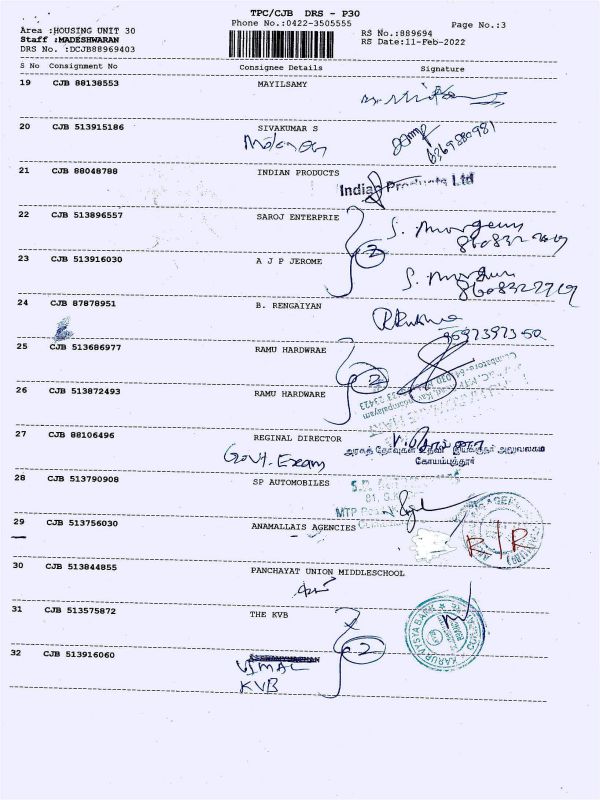 TPC/CJB DRS - P30
Phone No.:0422-3505555
Page No.:3
Area :HOUSING UNIT 30
Staff :MADESHWARAN
DRS No. :DCJB88969403
RS No.:889694
RS Date:11-Feb-2022
S No Consignment No Consignee Details Signature
19 CJB 88138553 MAYILSAMY
20 CJB 513915186 SIVAKUMAR S
6369880981
21 CJB 88048788 INDIAN PRODUCTS
Indian Products Ltd
22 CJB 513896557 SAROJ ENTERPRIE
23 CJB 513916030 A J P JEROME
2
24 CJB 87878951 B. RENGAIYAN
25 CJB 513686977 RAMU HARDWRAE
26 CJB 513872493 RAMU HARDWARE
2
27 CJB 88106496 REGINAL DIRECTOR
Govt. Exam
அரசுத் தேர்வுகள் உதவி இயக்குநர் அலுவலகம்
கோயம்புத்தூர்
28 CJB 513790908 SP AUTOMOBILES
29 CJB 513756030 ANAMALLAIS AGENCIES
R/R
30 CJB 513844855 PANCHAYAT UNION MIDDLESCHOOL
31 CJB 513575872 THE KVB
KARUR VYSYA BANK
2
32 CJB 513916060
VIMAL
KVB